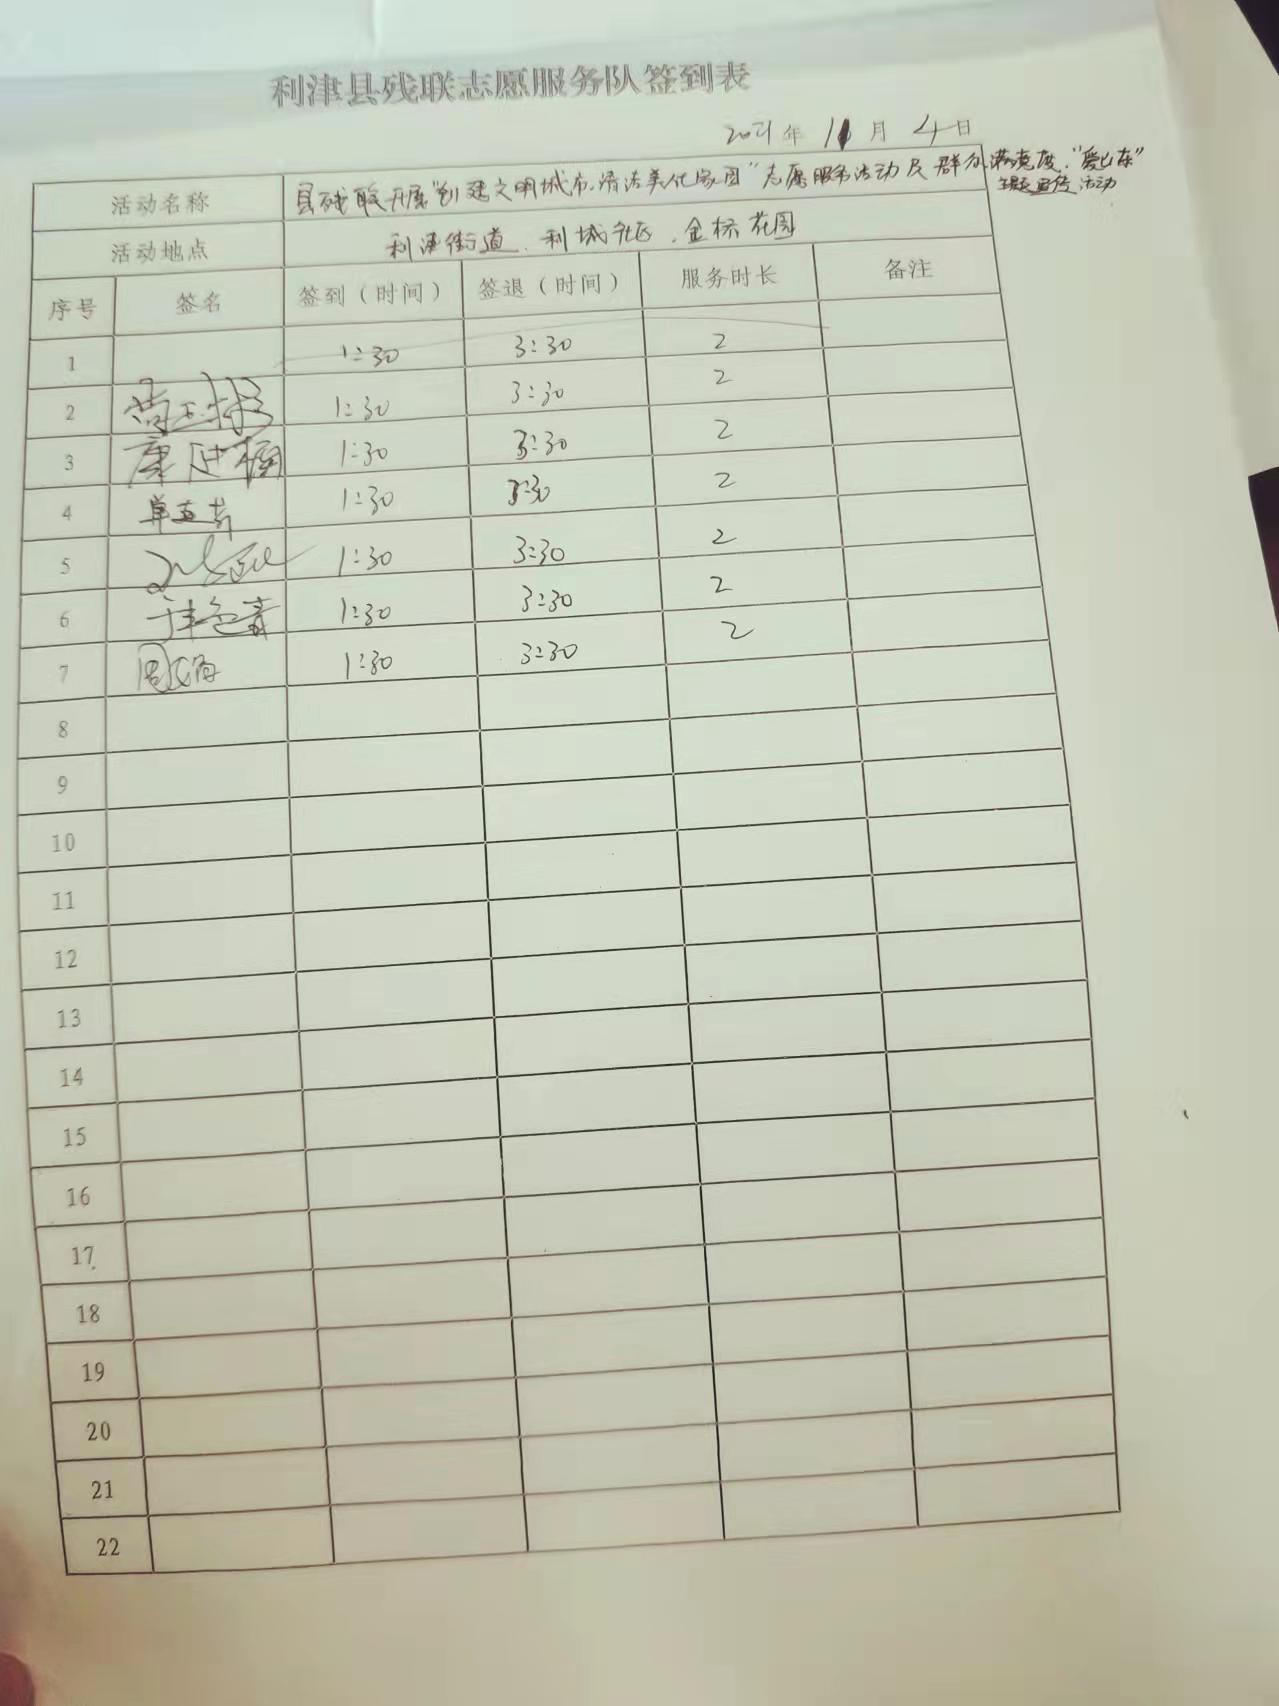 利津县残联志愿服务队签到表
2021年 11月 4日
活动名称 县残联开展"创建文明城市,清洁美化家园"志愿服务活动及群众满意度、"爱山东"
主题宣传活动
活动地点 利津街道、利城社区、金标花园
序号 签名 签到（时间） 签退（时间） 服务时长 备注
1 1:30 3:30 2
2 1:30 3:30 2
3 1:30 3:30 2
4 1:30 3:30 2
5 1:30 3:30 2
6 1:30 3:30 2
7 1:30 3:30 2
8
9
10
11
12
13
14
15
16
17
18
19
20
21
22